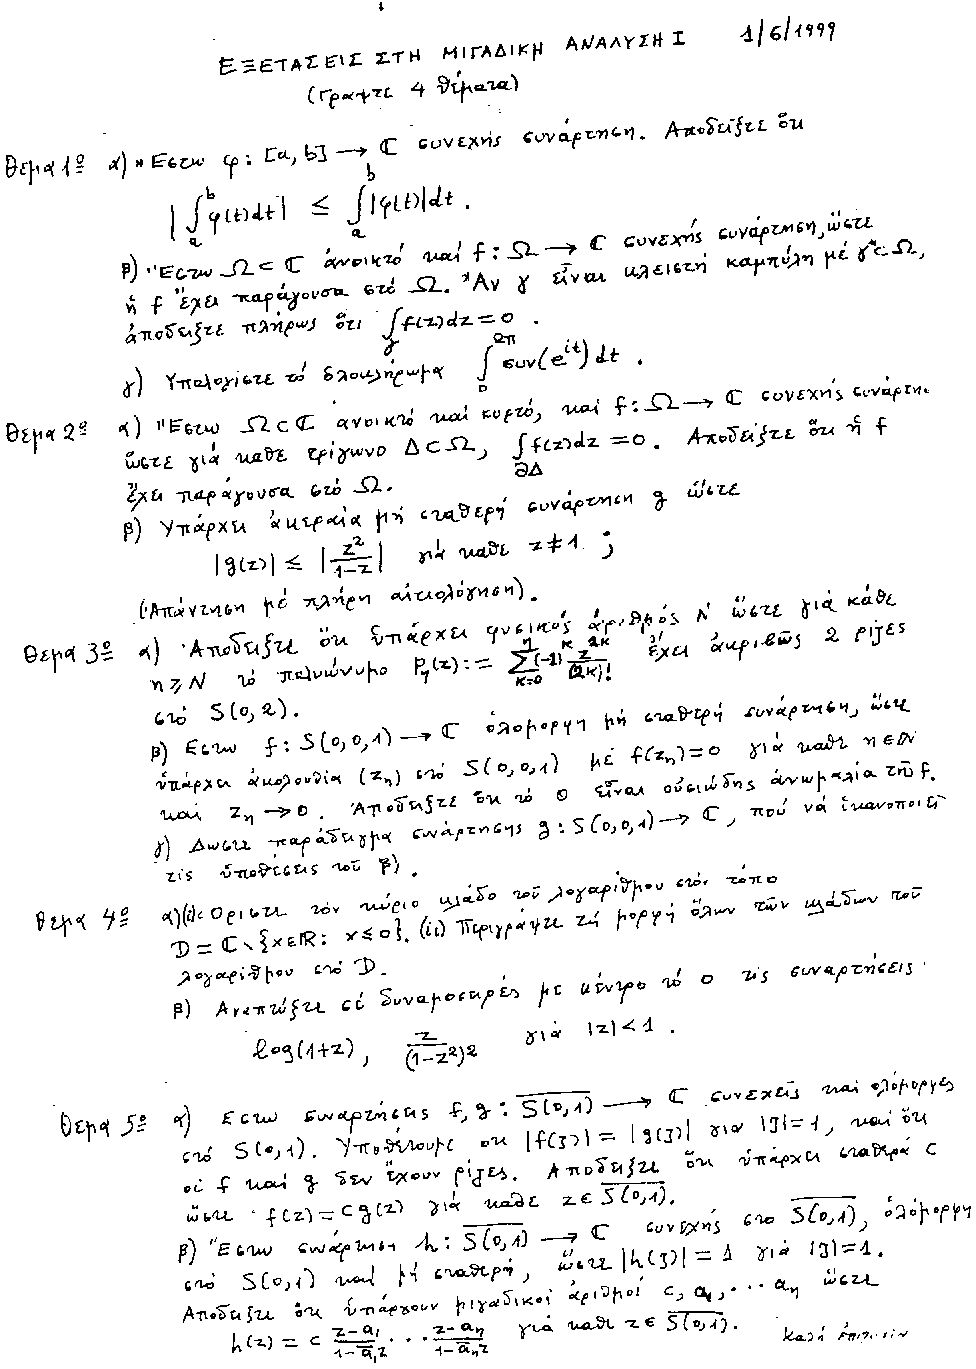 ΕΞΕΤΑΣΕΙΣ ΣΤΗ ΜΙΓΑΔΙΚΗ ΑΝΑΛΥΣΗ Ι 1/6/1999
(Γραψτε 4 θέματα)
Θεμα 1º α) Ἔστω φ: [a, b] → ℂ συνεχής συνάρτηση. Αποδείξτε ὅτι
|∫_a^b φ(t)dt| ≤ ∫_a^b |φ(t)|dt.
β) Ἔστω Ω ⊂ ℂ ἀνοικτό καί f: Ω → ℂ συνεχής συνάρτηση, ὥστε
ἡ f ἔχει παράγουσα στό Ω. Ἄν γ εἶναι κλειστή καμπύλη μέ γ* ⊂ Ω,
ἀποδειξτε πλήρως ὅτι ∫_γ f(z)dz = 0.
γ) Υπολογίστε τό ὁλοκλήρωμα ∫_0^{2π} συν(e^{it}) dt.
Θεμα 2º α) Ἔστω Ω ⊂ ℂ ἀνοικτό καί κυρτό, καί f: Ω → ℂ συνεχής συνάρτη.
ὥστε γιά καθε τρίγωνο Δ ⊂ Ω, ∫_{∂Δ} f(z)dz = 0. Αποδείξτε ὅτι ἡ f
ἔχει παράγουσα στό Ω.
β) Υπάρχει ἀκεραία μή σταθερή συνάρτηση g ὥστε
|g(z)| ≤ |z²/(1-z)| γιά καθε z ≠ 1 ;
(Απάντηση μέ πλήρη αἰτιολόγηση).
Θεμα 3º α) Ἀποδείξτε ὅτι ὑπάρχει φυσικός ἀριθμός N ὥστε γιά κάθε
n ≥ N τό πολυώνυμο P_n(z) := Σ_{κ=0}^{n} (-1)^κ z^{2κ}/(2κ)! ἔχει ἀκριβῶς 2 ρίζες
στό S(0, 2).
β) Εστω f: S(0,0,1) → ℂ ὁλόμορφη μή σταθερή συνάρτηση, ὥστε
ὑπάρχει ἀκολουθία (z_n) στό S(0,0,1) μέ f(z_n) = 0 γιά καθε n ∈ ℕ
και z_n → 0. Ἀποδείξτε ὅτι τό 0 εἶναι οὐσιώδης ἀνωμαλία τῆς f.
γ) Δωστε παράδειγμα συνάρτησης g: S(0,0,1) → ℂ, πού νά ἱκανοποιεῖ
τίς ὑποθέσεις τοῦ β).
Θεμα 4º α)(i) Ὁρίστε τόν κύριο κλάδο τοῦ λογαρίθμου στόν τόπο
D = ℂ \ {x ∈ ℝ : x ≤ 0}. (ii) Περιγράψτε τή μορφή ὅλων τῶν κλάδων τοῦ
λογαρίθμου στό D.
β) Αναπτύξτε σέ δυναμοσειρές με κέντρο τό 0 τίς συναρτήσεις
log(1+z), z/(1-z²)² γιά |z| < 1.
Θεμα 5º α) Εστω συναρτήσεις f, g: \overline{S(0,1)} → ℂ συνεχεῖς καί ολόμορφες
στό S(0,1). Υποθέτουμε οτι |f(ζ)| = |g(ζ)| γιά |ζ| = 1, καί ὅτι
οἱ f καί g δεν ἔχουν ρίζες. Αποδείξτε ὅτι ὑπάρχει σταθερά c
ὥστε f(z) = c g(z) γιά καθε z ∈ \overline{S(0,1)}.
β) Ἔστω συνάρτηση h: \overline{S(0,1)} → ℂ συνεχής στο \overline{S(0,1)}, ὁλόμορφη
στό S(0,1) καί μή σταθερή, ὥστε |h(ζ)| = 1 γιά |ζ| = 1.
Αποδειξτε ὅτι ὑπάρχουν μιγαδικοί ἀριθμοί c, a_1, ... a_n ὥστε
h(z) = c (z-a_1)/(1-\bar{a}_1 z) ... (z-a_n)/(1-\bar{a}_n z) γιά καθε z ∈ \overline{S(0,1)}. Καλή ἐπιτυχία